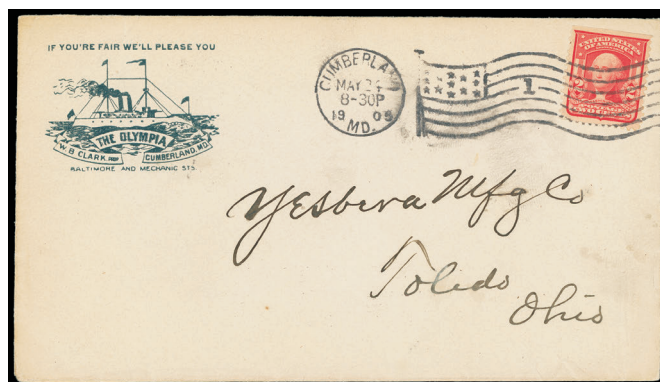 IF YOU'RE FAIR WE'LL PLEASE YOU
THE OLYMPIA
W. B. CLARK, PROP. CUMBERLAND, MD.
BALTIMORE AND MECHANIC STS.
CUMBERLAND
MAY 24
8-30P
1905
MD.
1
UNITED STATES
OF AMERICA
2 2
Yesbera Mfg Co
Toledo
Ohio